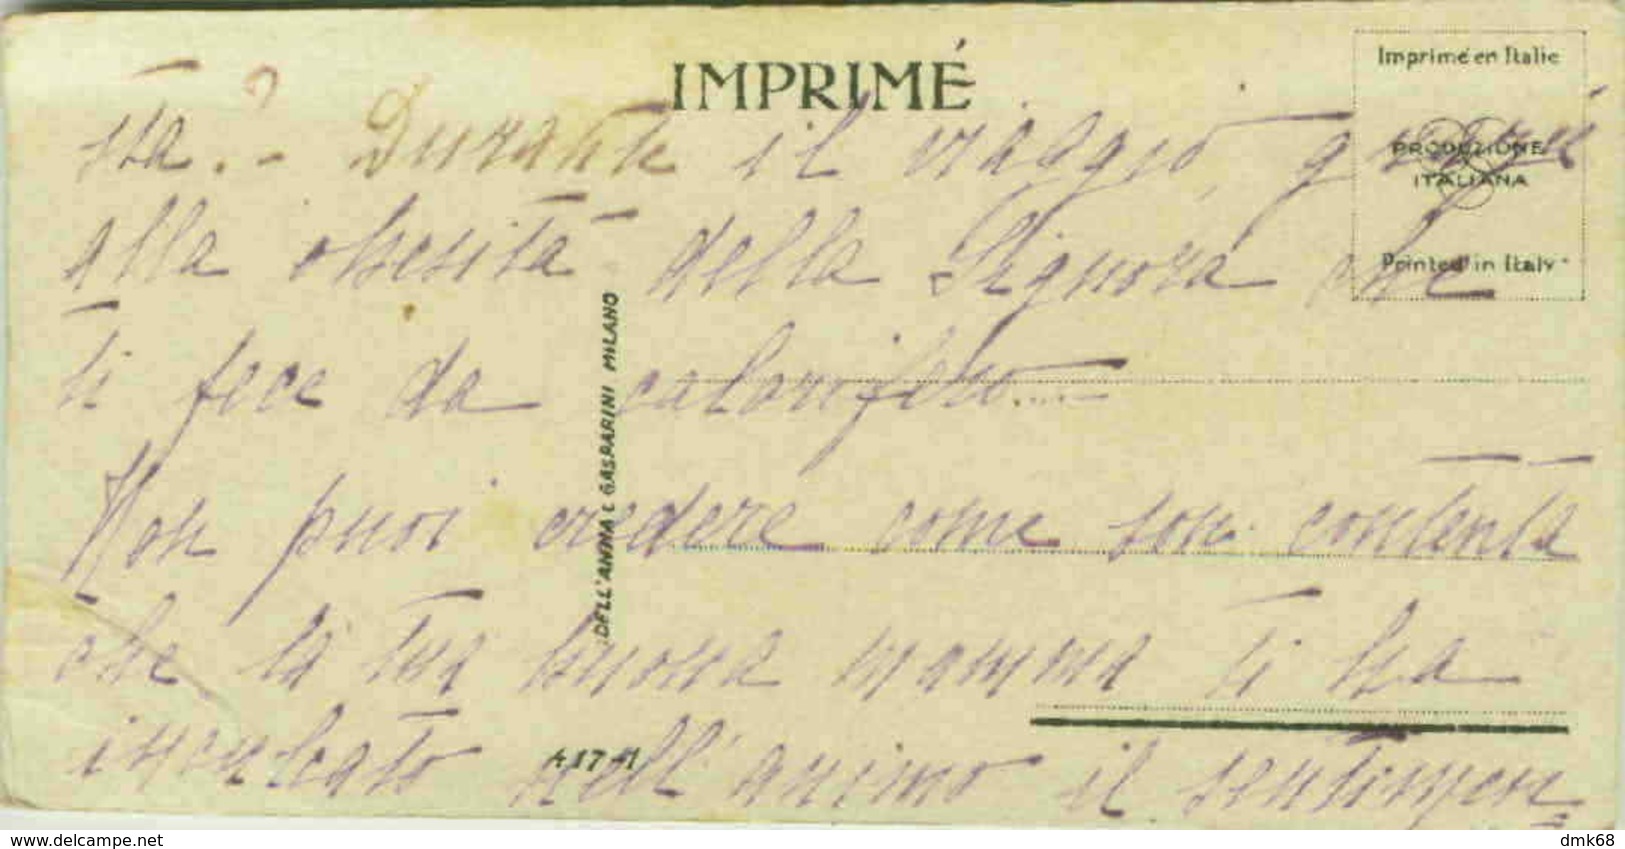 IMPRIMÉ
Imprimé en Italie
PRODUZIONE
ITALIANA
Printed in Italy
sta? - Durante il viaggio,
alla obesità della Signora che
ti fece da calorifero....
Non puoi credere come son contenta
che la tua buona mamma ti ha
inculcato nell'animo il sentimen=
DELL'ANNA E GASPARINI MILANO
dmk68
delcampe.net